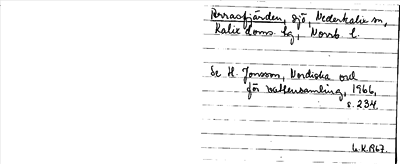 Perrasfjärden, sjö, Nederkalix sn,
Kalix doms. lg, Norrb. l.
Se H. Jonsson, Nordiska ord
för vattensamling, 1966,
s. 234.